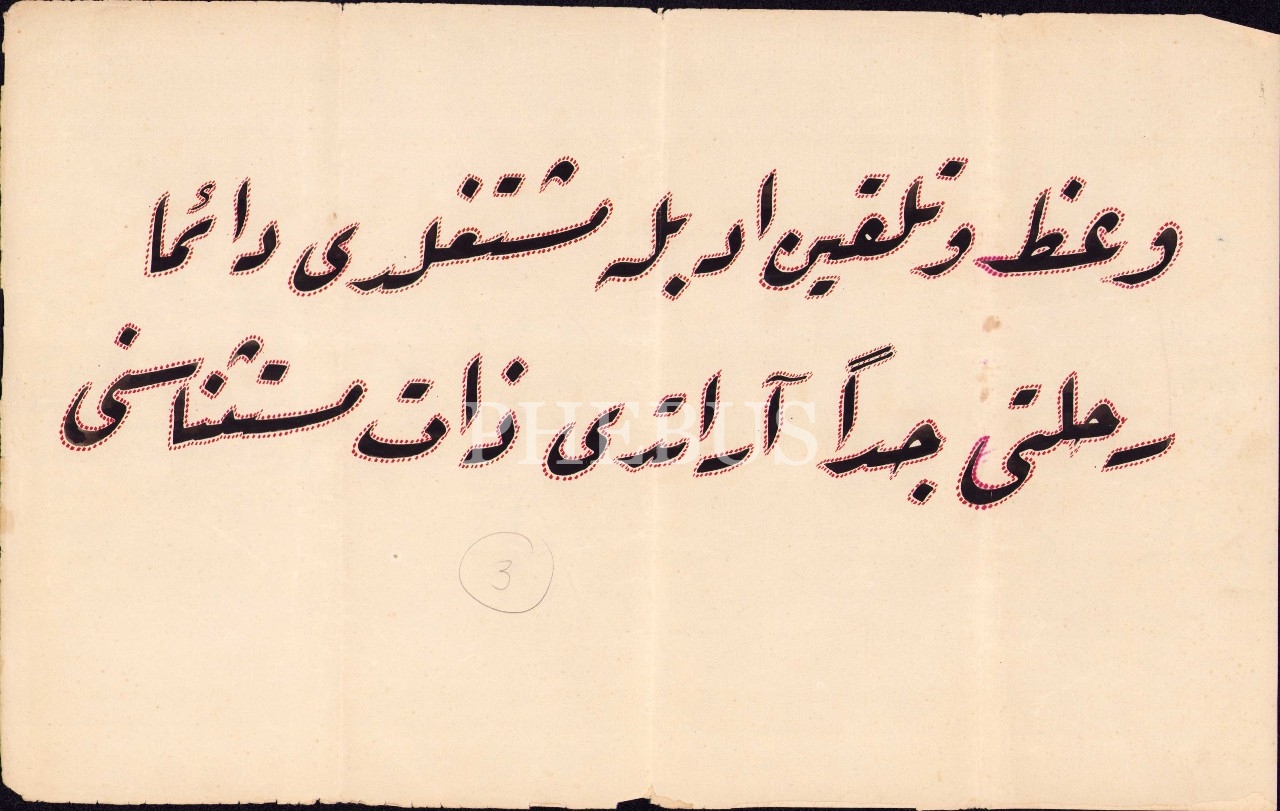 وعظ وتلقین ادبله مشتغلدی دائما
رحلتی جداً آراتدی ذات مستثناسنی
PHEBUS
3